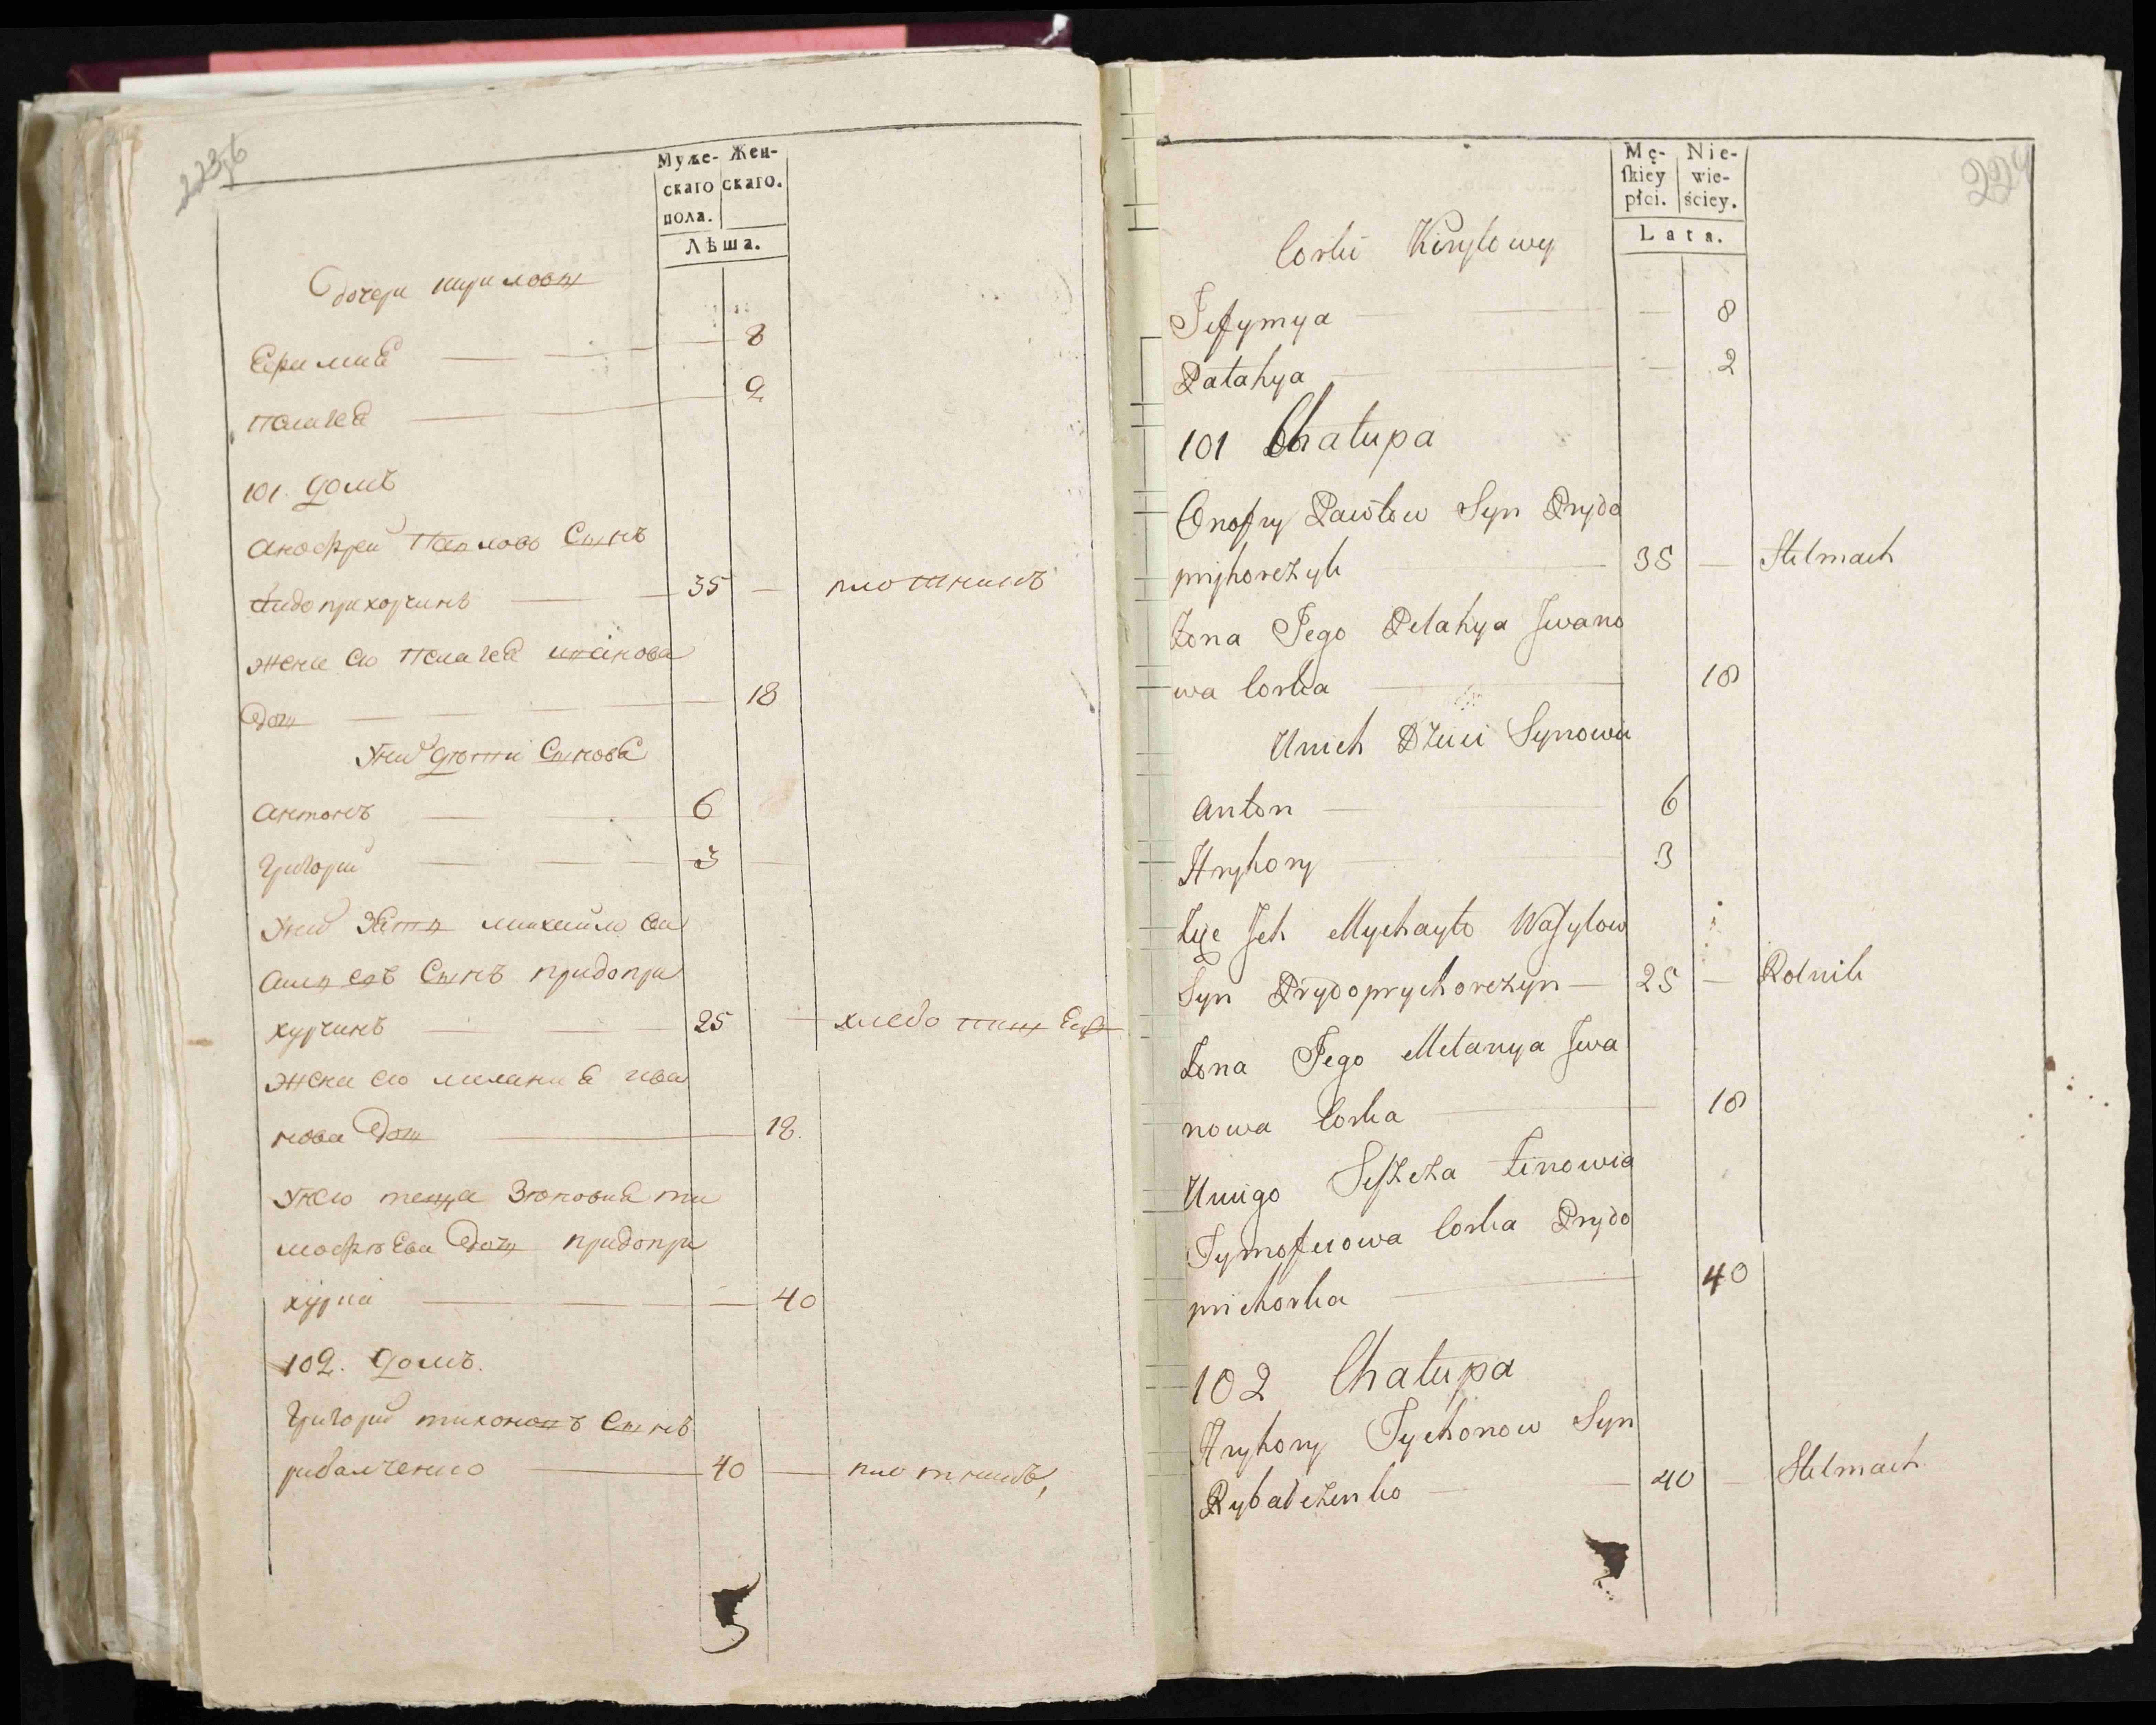 223об
Муже- Жен-
скаго скаго.
пола.
Лѣта.
дочери кириловы
Ефимия — 8
Палагея — 2
101. домъ
Анофреи Павловъ Сынъ
придоприхорчинъ — 35 — плотникъ
жена ево Палагея иванова
дочь — 18
У них дѣти Сыновя
Антонъ — 6
Григории — 3
У них зать михаило ва
силевъ Сынъ придопри
хурчинъ — 25 — хлебо пашец
жена ево мелания ива
нова дочь — 18.
У нево теща Зѣновия ти
мофѣева дочь придопри
хурка — 40
102. домъ.
Григории тихоновъ Сынъ
рибалченко — 40 — плотникъ,
224
Mę- Nie-
skiey wie-
płci. ściey.
Lata.
Corki Kiryłowy
Jefymya — 8
Pałahya — 2
101 Chałupa
Onofry Pawłow Syn Prydo
pryhorczyk — 35 — Stelmach
Żona Jego Pelahya Jwano
wa Corka — 18
Unich Dzieci Synowie
Anton — 6
Hryhory — 3
Zięc Jch Mychayło Wasylow
Syn Prydoprychorczyn — 25 — Rolnik
Żona Jego Mełanya Jwa
nowa Corka — 18
Uniego Teszcza Zinowia
Tymofieiowa Corka Prydo
prichorka — 40
102 Chałupa
Hryhory Tychonow Syn
Rybalczenko — 40 Stelmach